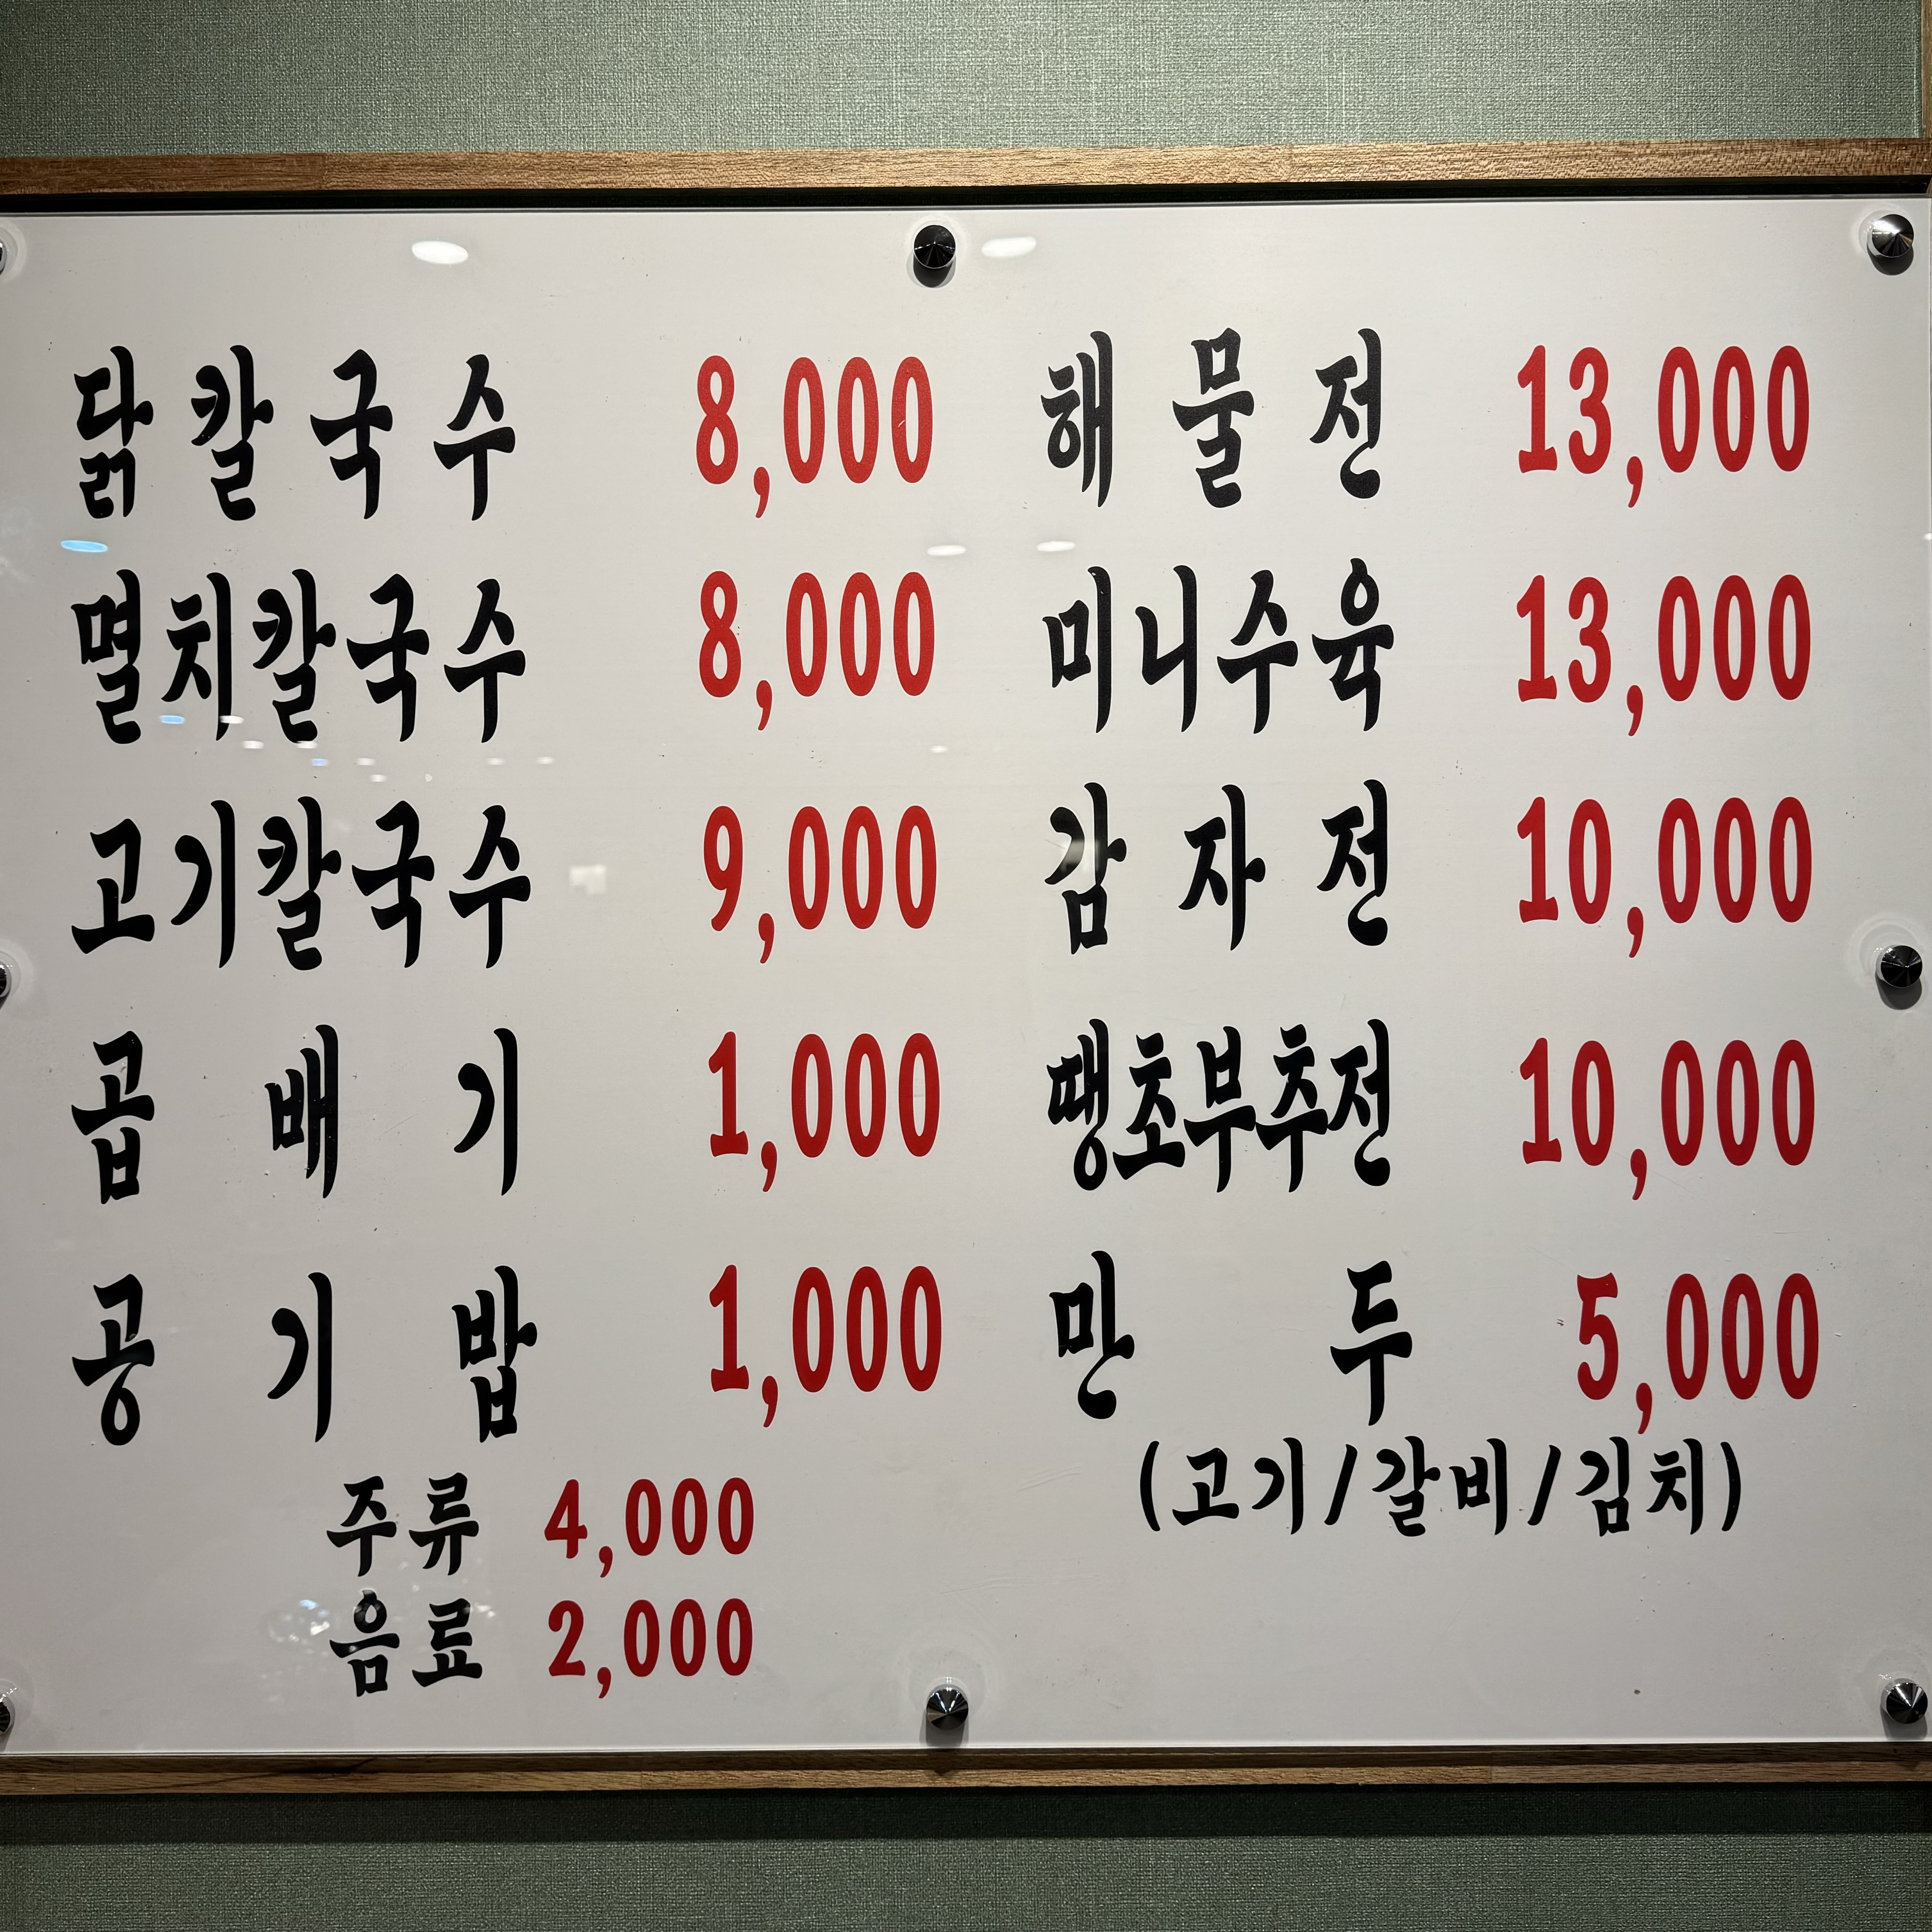 닭칼국수 8,000
멸치칼국수 8,000
고기칼국수 9,000
곱배기 1,000
공기밥 1,000
주류 4,000
음료 2,000
해물전 13,000
미니수육 13,000
감자전 10,000
땡초부추전 10,000
만두 5,000
(고기/갈비/김치)